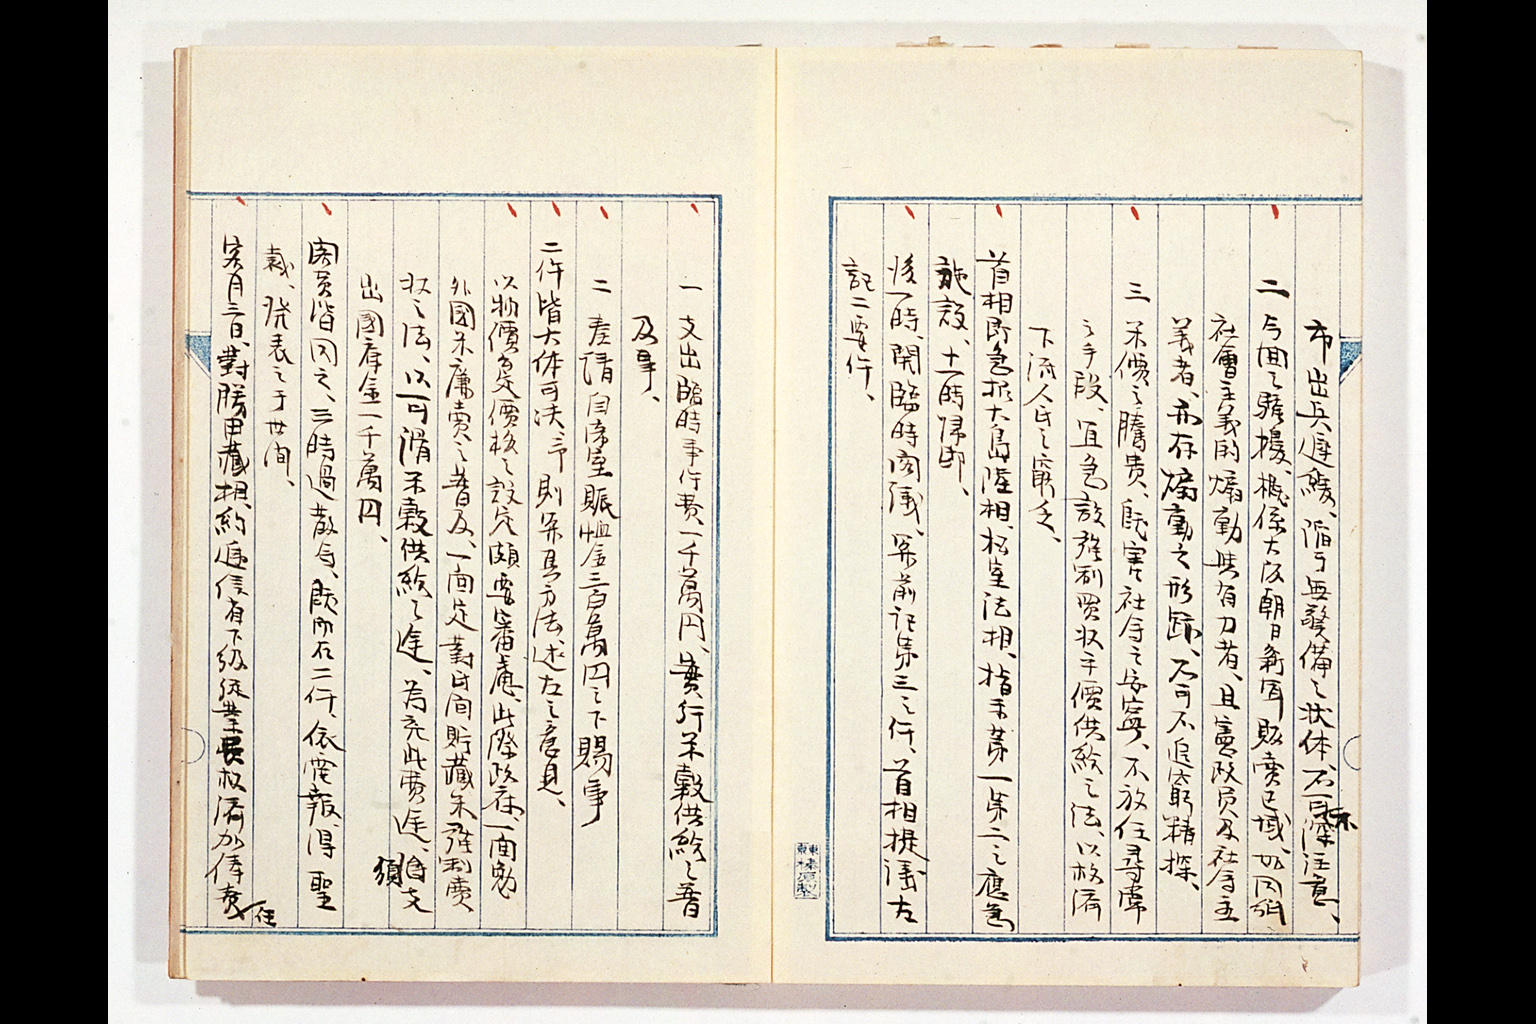 市出兵遅緩、陥于無警備之状体、不可不深注意、
二 今回之騒擾、概係大阪朝日新聞販売区域、如同紙
社會主義的煽動與有力者、且憲政会員及社会主
義者、亦存煽動之形跡、不可不追窮精探、
三 米價之騰貴、既害社会之安寧、不放任尋常
之手段、宜急設強制買収平價供給之法、以救済
下流人民之窮乏、
首相即急招大島陸相、松室法相、指示第一第二之應急
施設、十一時帰邸、
後一時、開臨時閣議、第前記第三之件、首相提議左
記二要件、
一 支出臨時事件費一千萬円、實行米穀供給之普
及事、
二 奏請自帝室賑恤金三百萬円之下賜事
二件皆大体可決、予則第其方法、述左之意見、
以物價急定價格之設定頗要審慮、此際政府一面勉
外國米廉売之普及、一面定對民間貯蔵米強制売
収之法、以可滑米穀供給之途、為充此費途、須支
出國庫金一千萬円、
閣員皆同之、三時過散会、既而右二件、依電報、得聖
裁、発表之于世間、
客月三十日、對勝田蔵相、約逓信省下級従業員救済加俸費